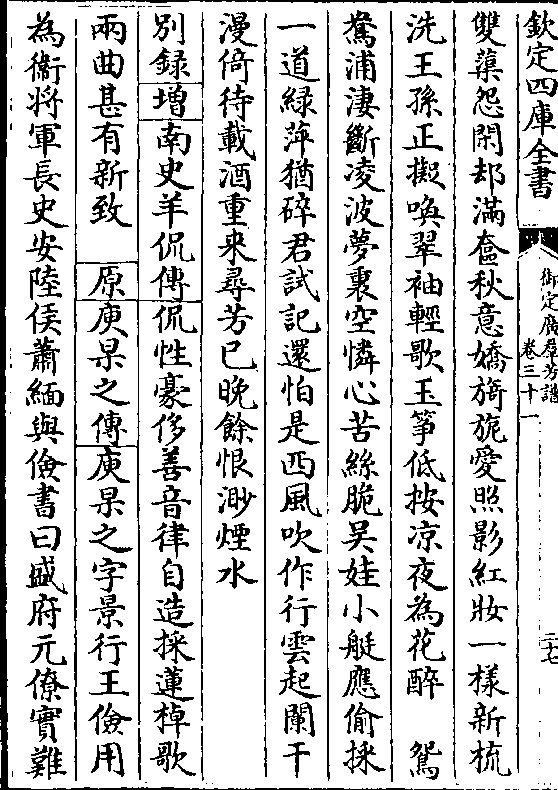 欽定四庫全書
御定廣羣芳譜
卷三十一
二十七
雙蕖怨閑却滿奩秋意嬌旖旎愛照影紅妝一樣新梳
洗王孫正擬喚翠袖輕歌玉箏低按凉夜為花醉　鴛
鴦浦淒斷凌波夢裏空憐心苦絲脆吴娃小艇應偷採
一道緑萍猶碎君試記還怕是西風吹作行雲起闌干
漫倚待載酒重来尋芳已晚餘恨渺煙水
别録增南史羊侃傳侃性豪侈善音律自造採蓮棹歌
兩曲甚有新致　原庾杲之傳庾杲之字景行王儉用
為衞將軍長史安陸侯蕭緬與儉書曰盛府元僚實難